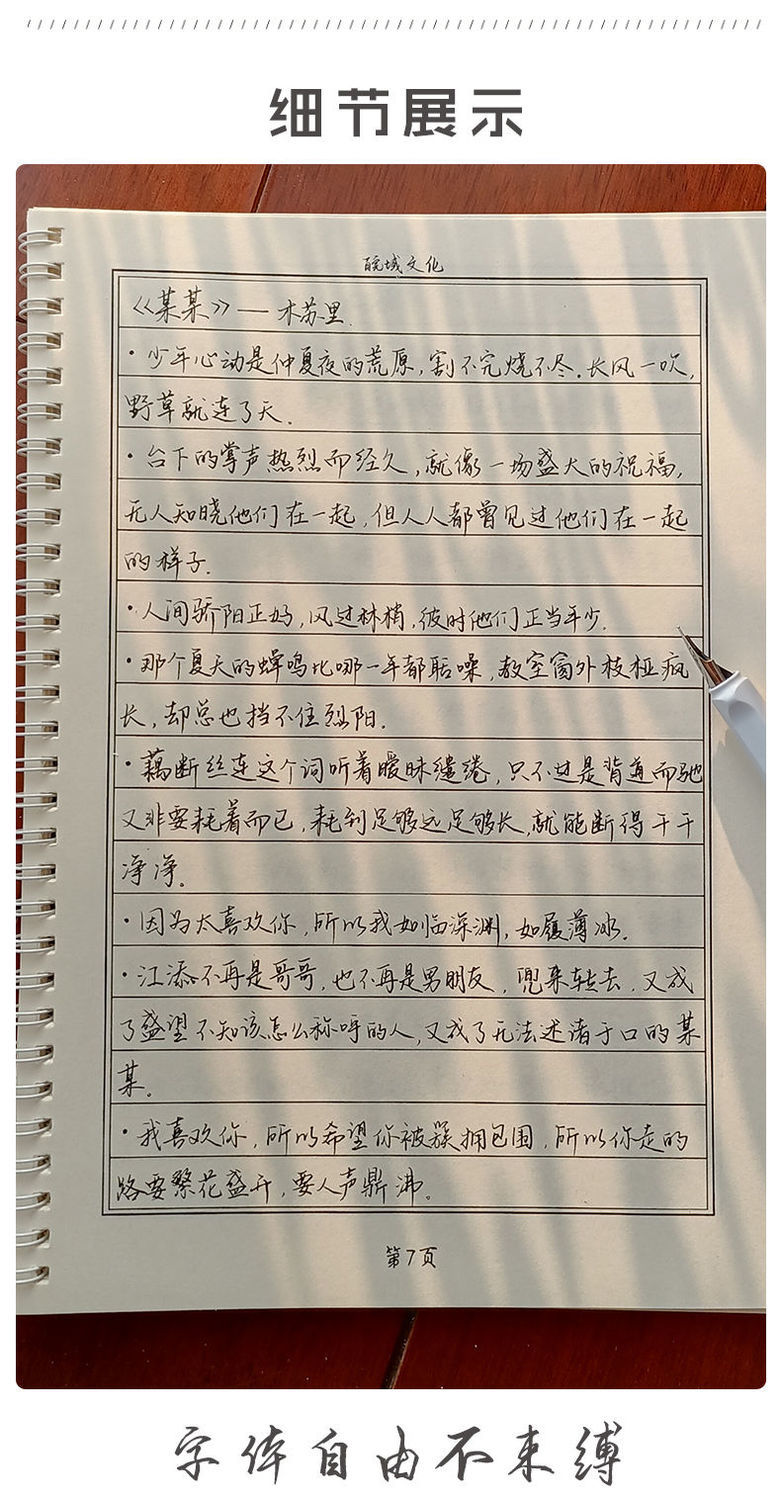 细节展示
皖城文化
《某某》— 木苏里.
·少年心动是仲夏夜的荒原,割不完烧不尽.长风一吹,
野草就连了天.
·台下的掌声热烈而经久,就像一场盛大的祝福,
无人知晓他们在一起,但人人都曾见过他们在一起
的样子.
·人间骄阳正好,风过林梢,彼时他们正当年少.
·那个夏天的蝉鸣比哪一年都聒噪,教室窗外枝桠疯
长,却总也挡不住烈阳.
·藕断丝连这个词听着暧昧缱绻,只不过是背道而驰
又非要耗着而已,耗到足够远足够长,就能断得干干
净净。
·因为太喜欢你,所以我如临深渊,如履薄冰.
·江添不再是哥哥,也不再是男朋友,兜来转去,又成
了盛望不知该怎么称呼的人,又成了无法述诸于口的某
某.
·我喜欢你,所以希望你被簇拥包围,所以你走的
路要繁花盛开,要人声鼎沸。
第7页
字体自由不束缚